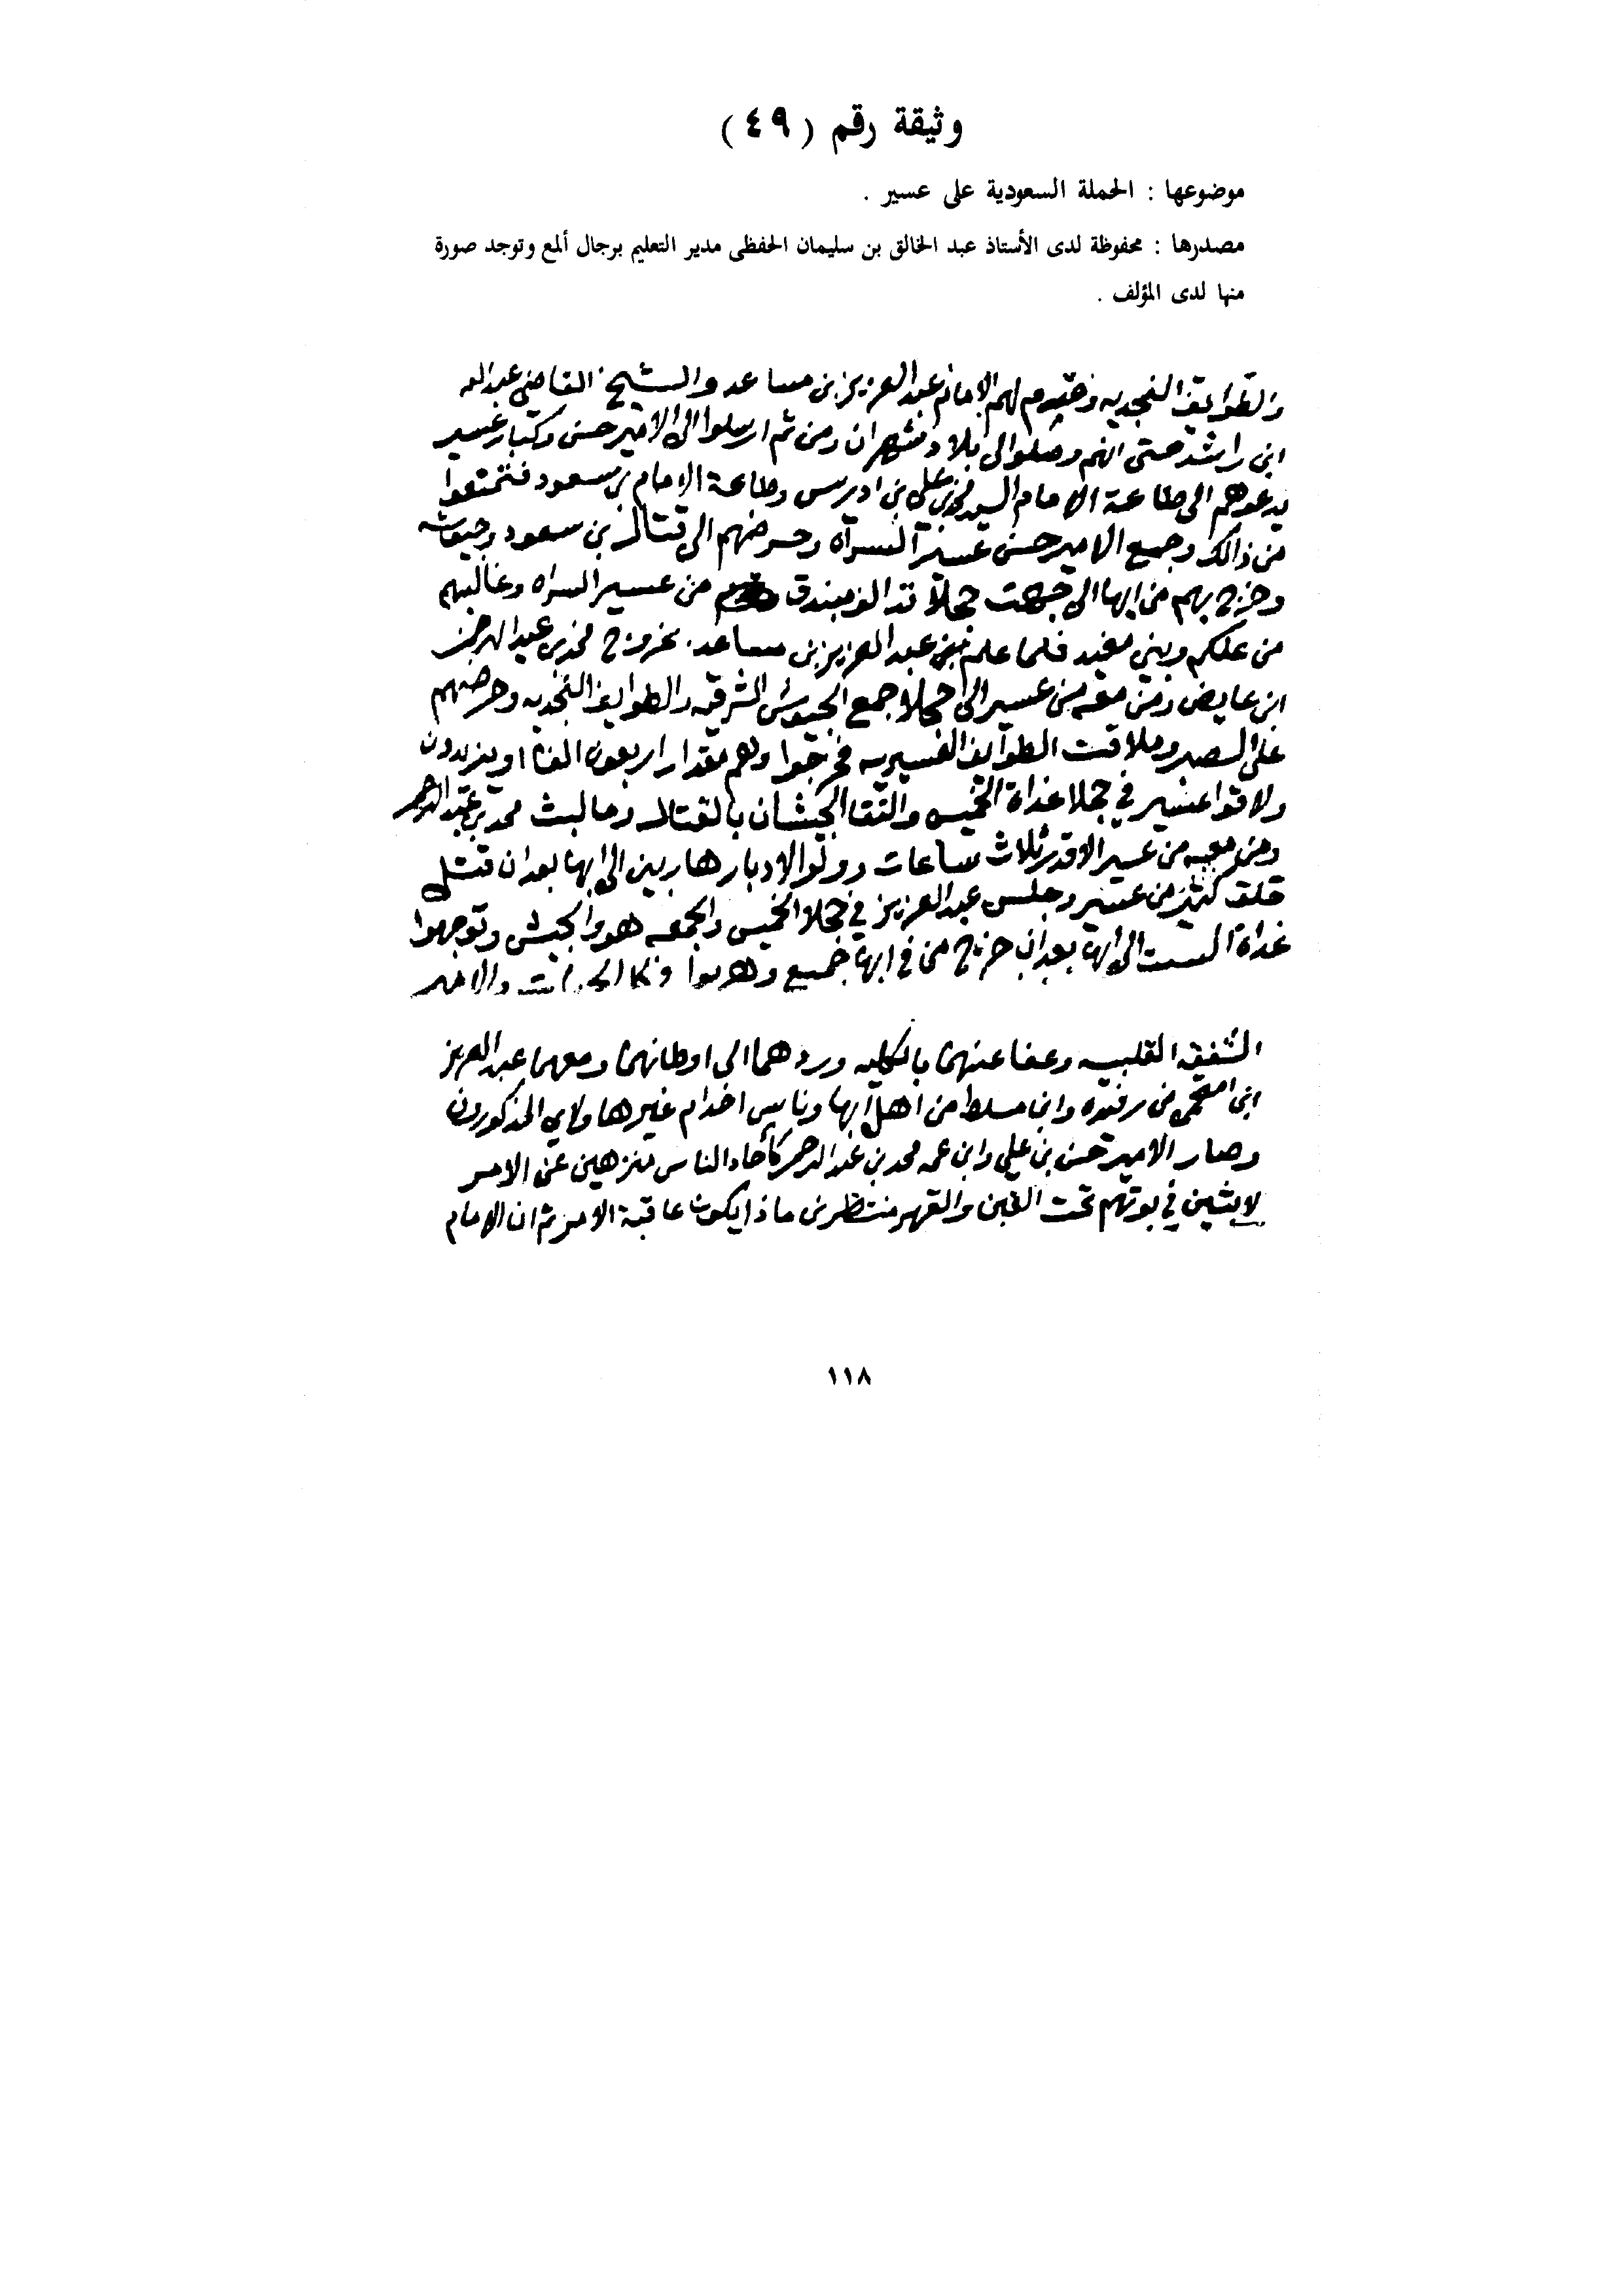 وثيقة رقم ( ٤٩ )
موضوعها : الحملة السعودية على عسير .
مصدرها : محفوظة لدى الأستاذ عبد الخالق بن سليمان الحفظى مدير التعليم برجال ألمع وتوجد صورة
منها لدى المؤلف .
والطوايف النجديه لهم الامام عبد العزيز بن مساعد والشيخ القاضي عبدالله
ابن راشد حتى انهم وصلوا الى بلاد شهران ومن ثم ارسلوا الى الامير حسن وكبار عسير
يدعوهم الى طاعة الامام السيد محمد بن علي بن ادريس وطاعة الامام بن سعود فتمتعوا
من ذالك وجمع الامير حسن عسير السراه وحرضهم الى قتال بن سعود وجيوشه
وخرج بهم من ابها الى جهت حجلا بندق من عسير السراه وغالبهم
من علكم وبني مغيد فلما علم عبد العزيز بن مساعد بخروج محمد بن عبد الرحمن
ابن عايض ومن معه من عسير الى حجلا جمع الجيوش الشرقيه والطوايف النجديه وحرضهم
على الصبر وملاقت الطوايف العسيريه فخرجوا وهم مقدار اربعون الفا او يزيدون
ولاقوا عسير في حجلا غداة الخميس والتقا الجيشان بالقتال وما لبث محمد بن عبد الرحمن
ومن معه من عسير الا قدر ثلاث ساعات وولوا الادبار هاربين الى ابها بعد ان قتل
خلق كثير من عسير وجلس عبد العزيز في حجلا الخميس والجمعه هو والجيش وتوجهوا
غداة السبت الى ابها بعد ان خرج من في ابها جميع وهربوا والامير
الشفقه القلبيه وعفا عنهما بالكليه وردهما الى اوطانهما ومعهما عبد العزيز
ابن من رفيده وابن مسلط من اهل ابها وناس اخدام غيرها ولاي المذكورون
وصار الامير حسن بن علي وابن عمه محمد بن عبد الرحمن كأحاد الناس منزهين عن الامر
لابثين في بوتهم تحت الغبن والقهر منتظرين ماذا يكون عاقبة الامر ثم ان الامام
١١٨